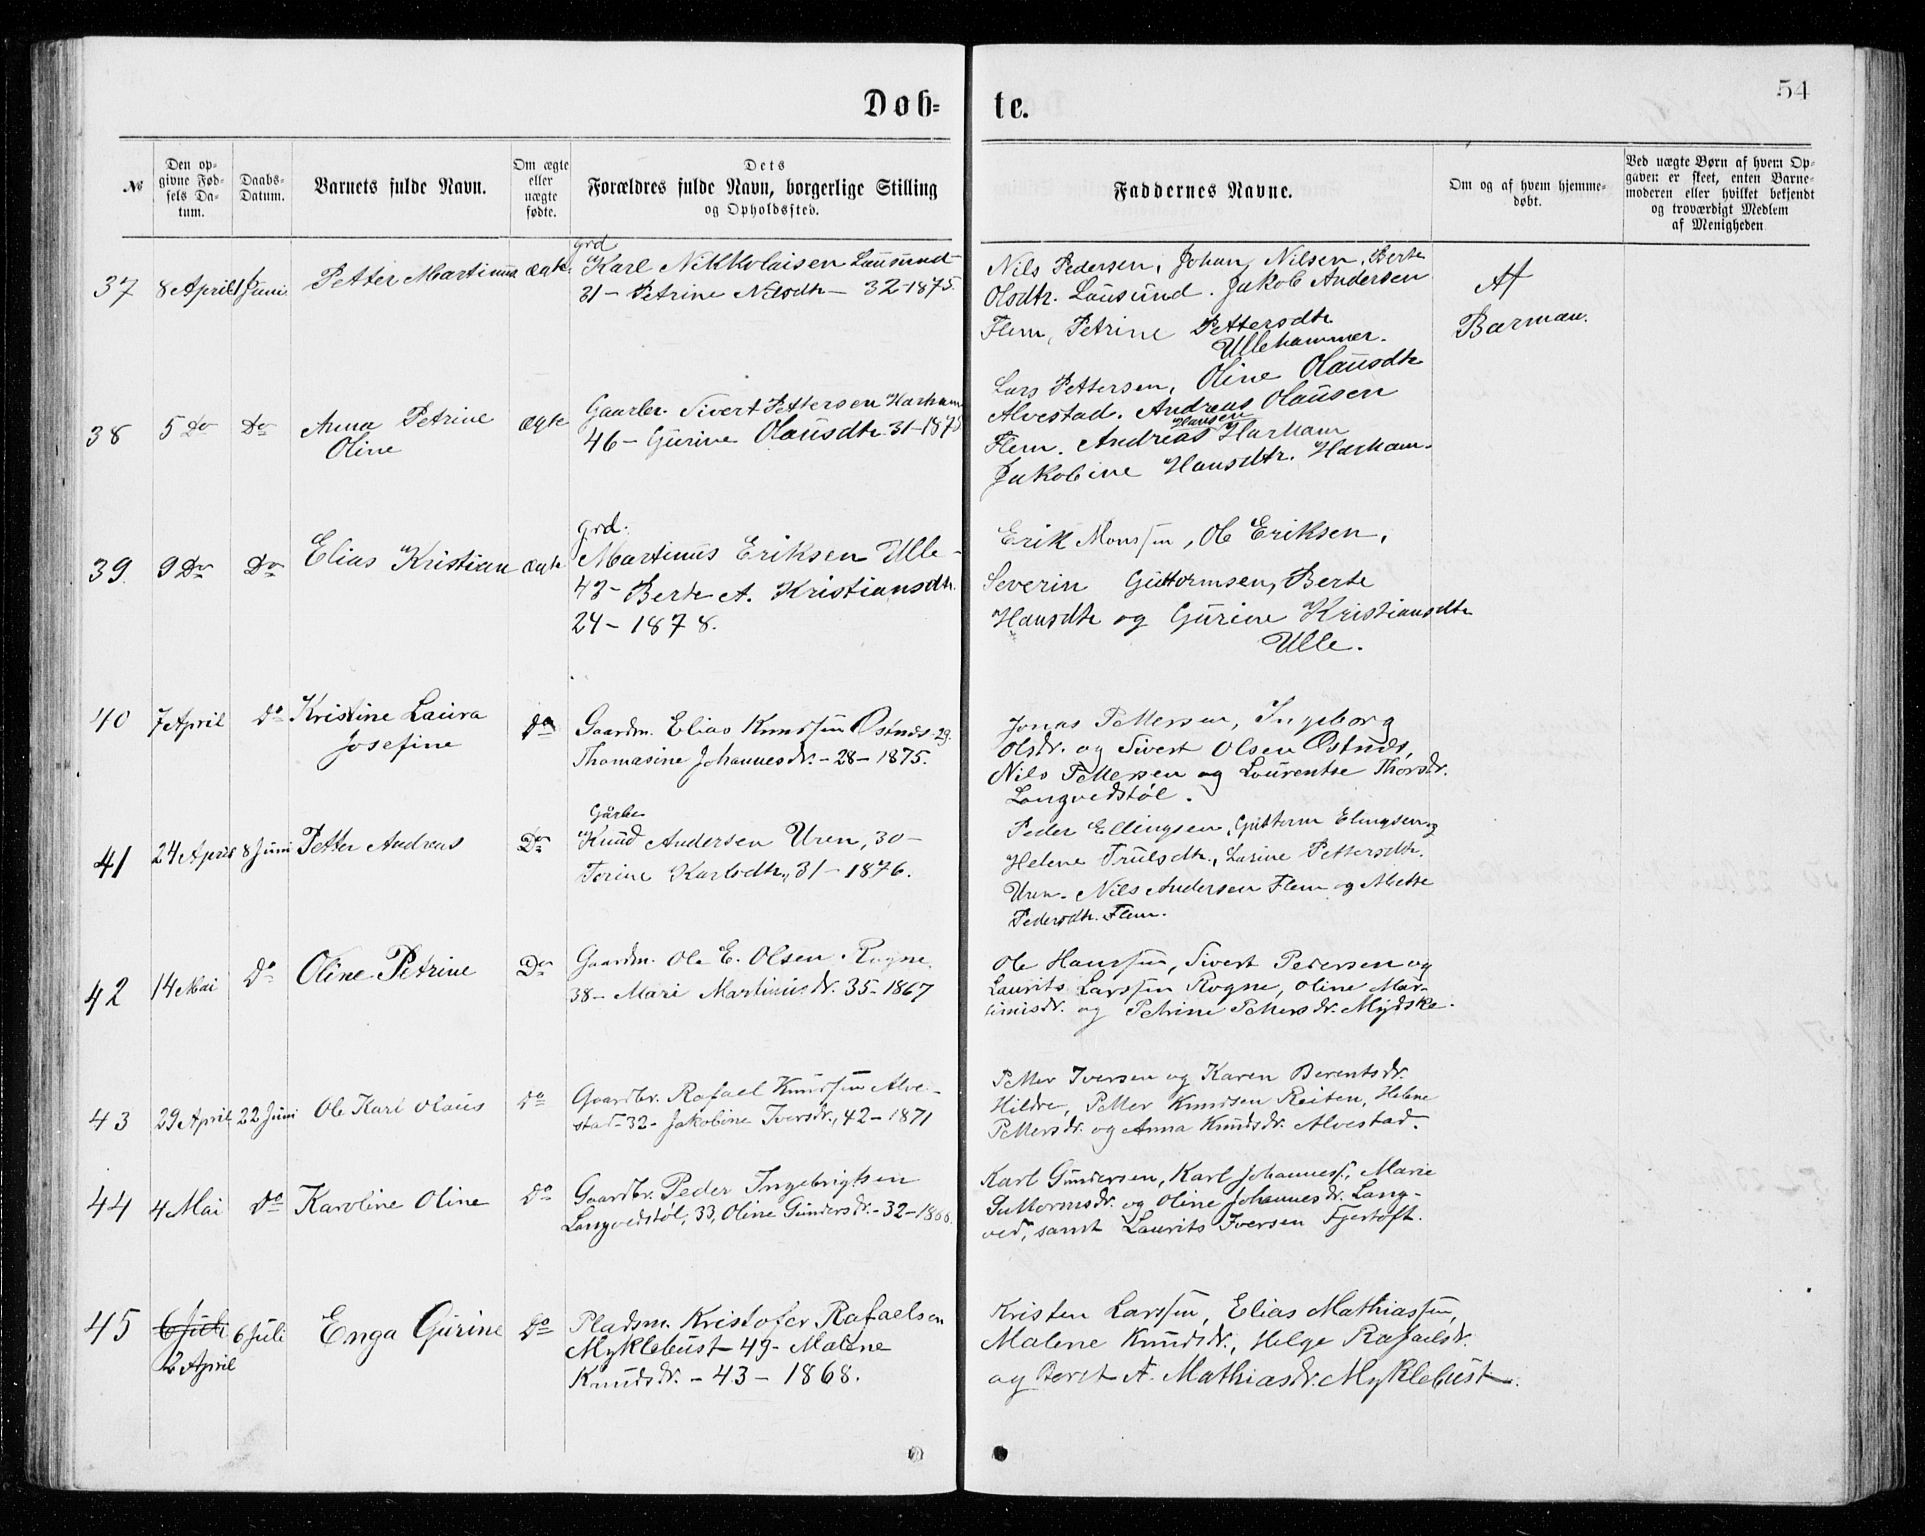 54
Døb-
te.
№
Den op-
givne Fød-
sels Da-
tum.
Daabs-
Datum.
Barnets fulde Navn.
Om ægte
eller
uægte
fødte.
Dets
Forældres fulde Navn, borgerlige Stilling
og Opholdssted.
Faddernes Navne.
Om og af hvem hjemme-
døbt.
Ved uægte Børn af hvem Op-
gaven er skeet, enten Barne-
moderen eller hvilket bekjendt
og troværdigt Medlem
af Menigheden
37 8 April 1 Juni Petter Martinus ægte
grd
Karl Nikkolaisen Lausund-
31 - Petrine Nilsdtr - 32-1875.
Nils Pedersen, Johan Nilsen, Berte
Olsdtr. Lausund. Jakob Andersen
Flem, Petrine Pettersdtr
Ullehammer.
Af
Barman.
38 5 Do Do Anna Petrine
Oline
ægte
Gaarbr. Sivert Pettersen Harham
46 - Gurine Olausdtr. 31-1875
Lars Pettersen, Oline Olausdtr
Alvestad. Andreas Olausen
Flem. Andreas Hansen Harham
Jakobine Hansdtr. Harham.
39. 9 Do Do Elias Kristian ægte
grd.
Martinus Eriksen Ulle -
43 - Berte A. Kristiansdtr.
24 - 1878.
Erik Monssen, Ole Eriksen,
Severin Guttormsen, Berte
Hansdtr og Gurine Kristiansdtr
Ulle.
40 7 April do Kristine Laura
Josefine
do
Gaardm. Elias Knudsen Østnes. 29.
Thomasine Johannesdr. - 28 - 1875.
Jonas Pettersen, Ingeborg
Olsdr. og Sivert Olsen Østnes,
Nils Pettersen og Laurentse Thorsdr.
Longvedstøl.
41 24 April 8 Juni Petter Andreas Do
Gårbr
Knud Andersen Uren, 30 -
Torine Karlsdtr, 31 - 1876.
Peder Ellingsen, Guttorm Elingsen og
Helene Trulsdtr., Larine Pettersdtr.
Uren. Nils Andersen Flem og Mette
Pedersdtr. Flem.
42 14 Mai do Oline Petrine Do
Gaardm. Ole E. Olsen Rogne
38 - Mari Martinusdr. 35 - 1867
Ole Hanssen, Sivert Pedersen og
Laurits Larssen Rogne, Oline Mar-
tinusdr. og Petrine Pettersdr. Mydske.
43 29 April 22 Juni Ole Karl Olaus do
Gaardbr. Rafael Knudsen Alve-
stad - 32 - Jakobine Iversdr., 42 - 1871
Petter Iversen og Karen Berentsdr.
Hildre, Petter Knudsen Reiten, Helene
Pettersdr. og Anna Knudsdr. Alvestad.
44 4 Mai do Karoline Oline do
Gaardbr. Peder Ingebrigtsen
Langvedstøl, 33, Oline Gundersdr. - 32 - 1866.
Karl Gundersen, Karl Johanness., Marie
Guttormsdr. og Oline Johannesdr. Lang-
ved, samt Laurits Iversen Fjertoft.
45 6 Juli 6 Juli Enga Gurine do
2 April
Pladsm. Kristofer Rafaelsen
Myklebust - 49 - Malene
Knudsdr. - 43 - 1868.
Kristen Larssen, Elias Mathiassen,
Malene Knudsdr., Helge Rafaelsdr.
og Berit A. Mathiasdr. Myklebust.